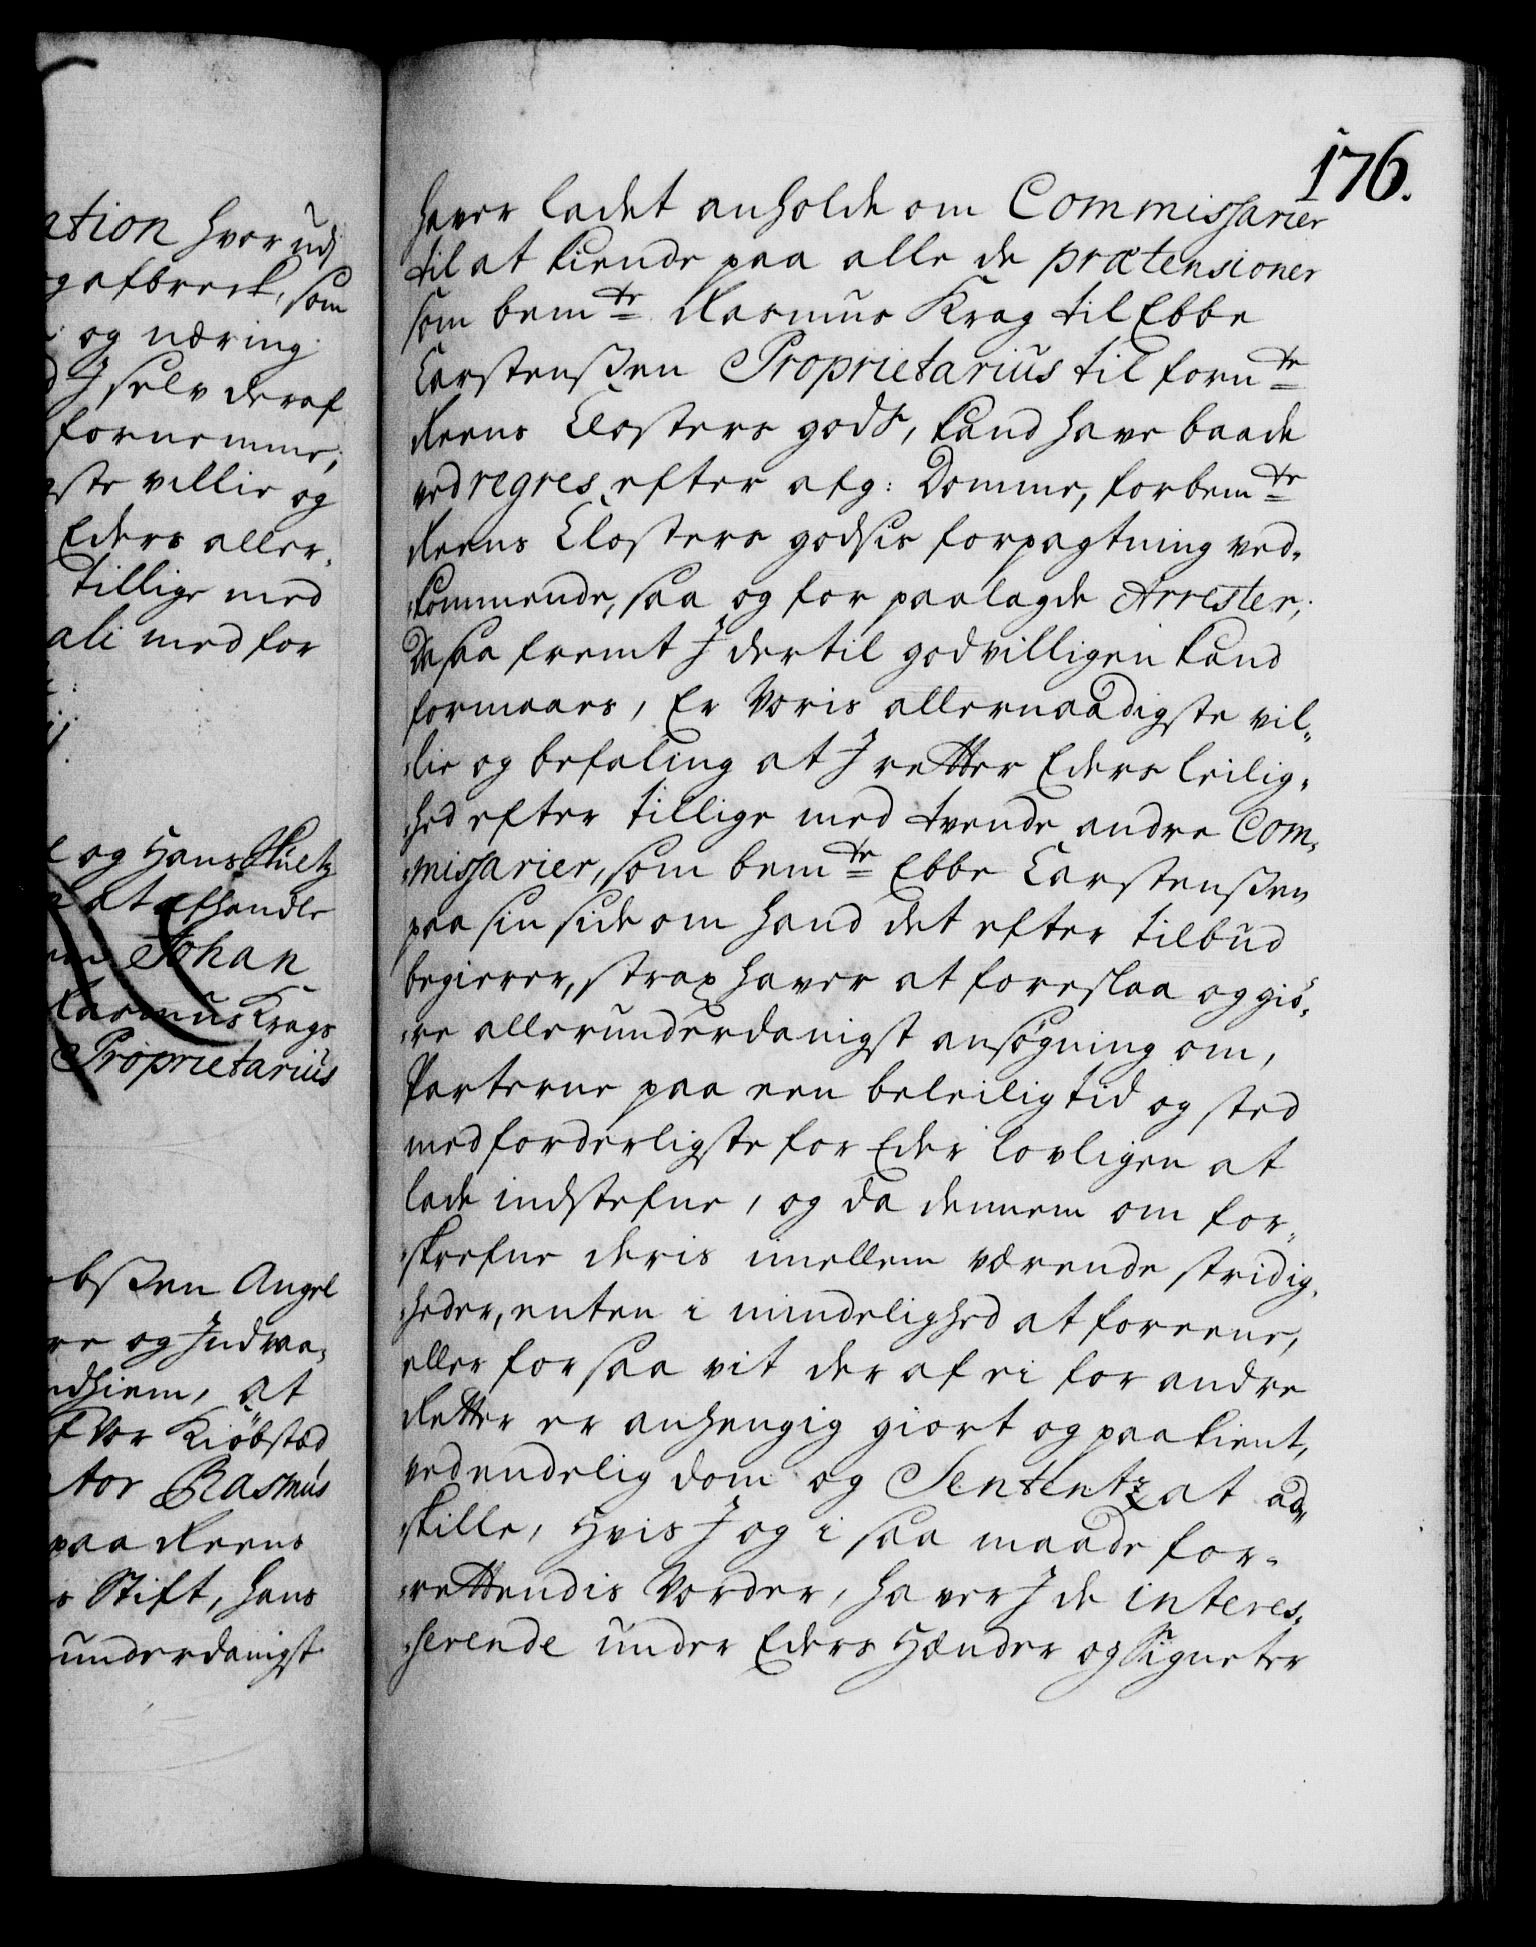 ation hvor udj
gafbreck, som
og næring
J self deraf
fornemme,
gste villie og
Eders aller-
tillige med
ali med for
og Hans
at afhandle
Johan
Rasmus Krags
Proprietarius
bsßen Angel
re og Indvaa-
ndhiem, at
f Vor Kiöbstæd
tor Rasmus
paa Reens
s Stift, hans
underdanigst
176.
haver ladet anholde om Commissarier
til at kiende paa alle de prætensioner
som bemte Rasmus Krag til Ebbe
Carstenßen Proprietarius til fornte
Reens Closters gods, kand have baade
ved regres efter afg: Domme, forbemte
Reens Closters godsis forpagtning ved-
kommende, saa og for paalagde Arrester;
Da saa fremt J dertil godvilligen kand
formaaes, Er Voris allernaadigste vil-
lie og befaling at J retter Eders leilig-
hed efter tillige med tvende andre Com-
missarier, som bemte Ebbe Carstenßen
paa sin side om hand det efter tilbud
begierer, strax haver at foreslaa og giö-
re allerunderdanigst ansøgning om,
Parterne paa een beleilig tid og sted
med forderligste for Eder lovligen at
lade indstefne, og da dennem om for-
skrefne deris imellem værende stridig-
heder, enten i mindelighed at foreene,
eller for saa vit der af ei for andre
Retter er anhengig giort og paakient,
ved endelig dom og Sententz at ad-
skille, Hvis J og i saa maade for-
rettendis Vorder, haver J de interes-
serende under Eders Hænder og Signeter